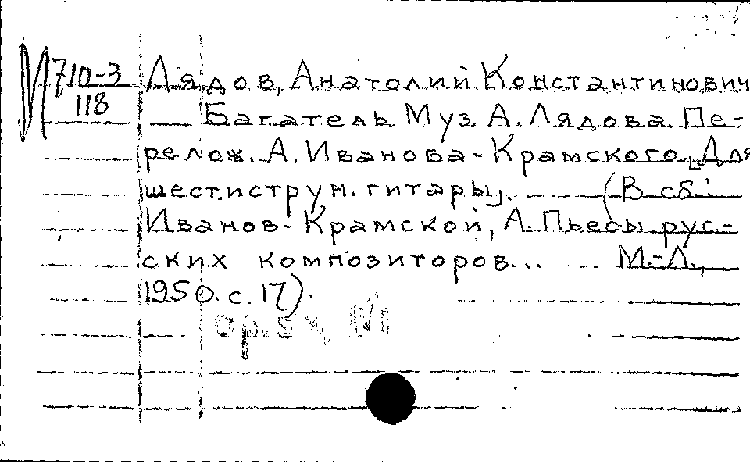 И 710-3
118
Лядов, Анатолий Константинович
— Багатель. Муз. А. Лядова. Пе-
релож. А. Иванова-Крамского. [Для
шестиструн. гитары]. — (В сб.:
Иванов-Крамской, А. Пьесы рус-
ских композиторов... М.-Л.,
1950. с. 17).